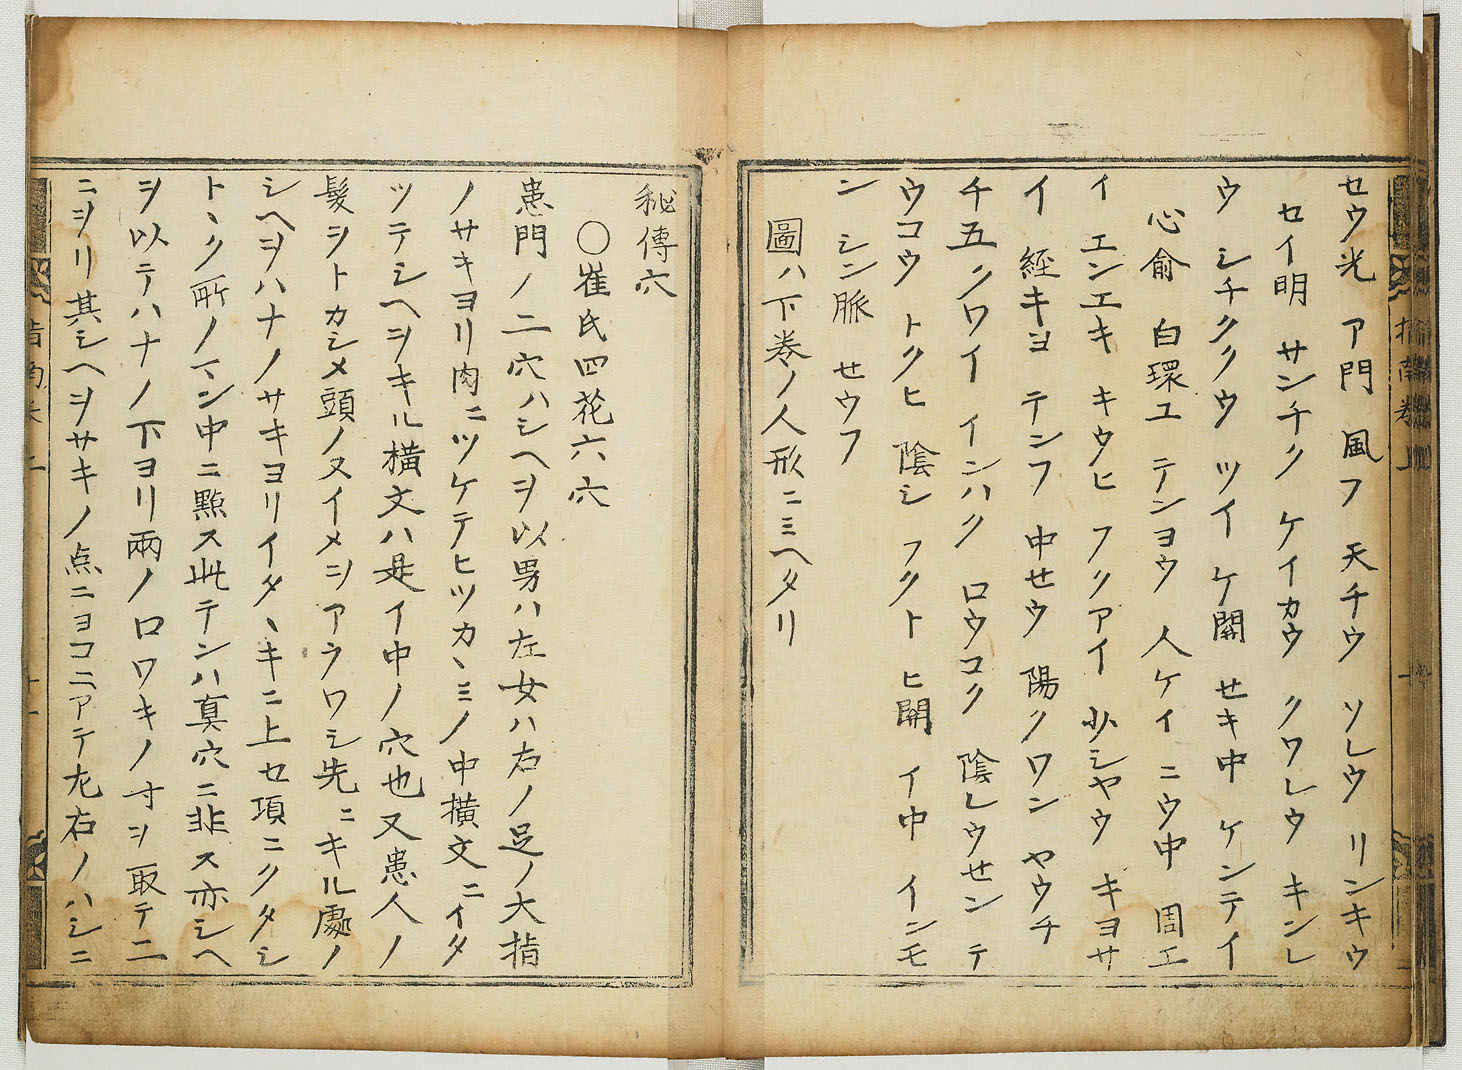 セウ光　ア門　風フ　天チウ　ソレウ　リンキウ
セイ明　サンチク　ケイカウ　クワレウ　キンレ
ウ　シチククウ　ツイ　ケ關　せキ中　ケンテイ
心俞　白環ユ　テンヨウ　人ケイ　ニウ中　周エ
イ　エンエキ　キウヒ　フクアイ　少シヤウ　キヨサ
イ　経キヨ　テンフ　中せウ　陽クワン　ヤウチ
チ　五クワイ　インハク　ロウコク　陰レウせン　テ
ウコウ　トクヒ　陰シ　フクト　ヒ關　イ中　インモ
ン　シン脈　せウフ
圖ハ下巻ノ人形ニミヘタリ
秘傳穴
○崔氏四花六穴
患門ノ二穴ハシヘヲ以男ハ左女ハ右ノ足ノ大指
ノサキヨリ肉ニツケテヒツカヽミノ中横文ニイタ
ツテシヘヲキル横文ハ是イ中ノ穴也又患人ノ
髪シトカシメ頭ノヌイメヲアラワシ先ニキル處ノ
シヘヲハナノサキヨリイタヽキニ上セ項ニクタシ
トヽク所ノマン中ニ點ス此テンハ真穴ニ非ス亦シヘ
ヲ以テハナノ下ヨリ兩ノロワキノ寸ヲ取テ二
ニヲリ其シヘヲサキノ点ニヨコニアテ左右ノハシニ
指南巻上